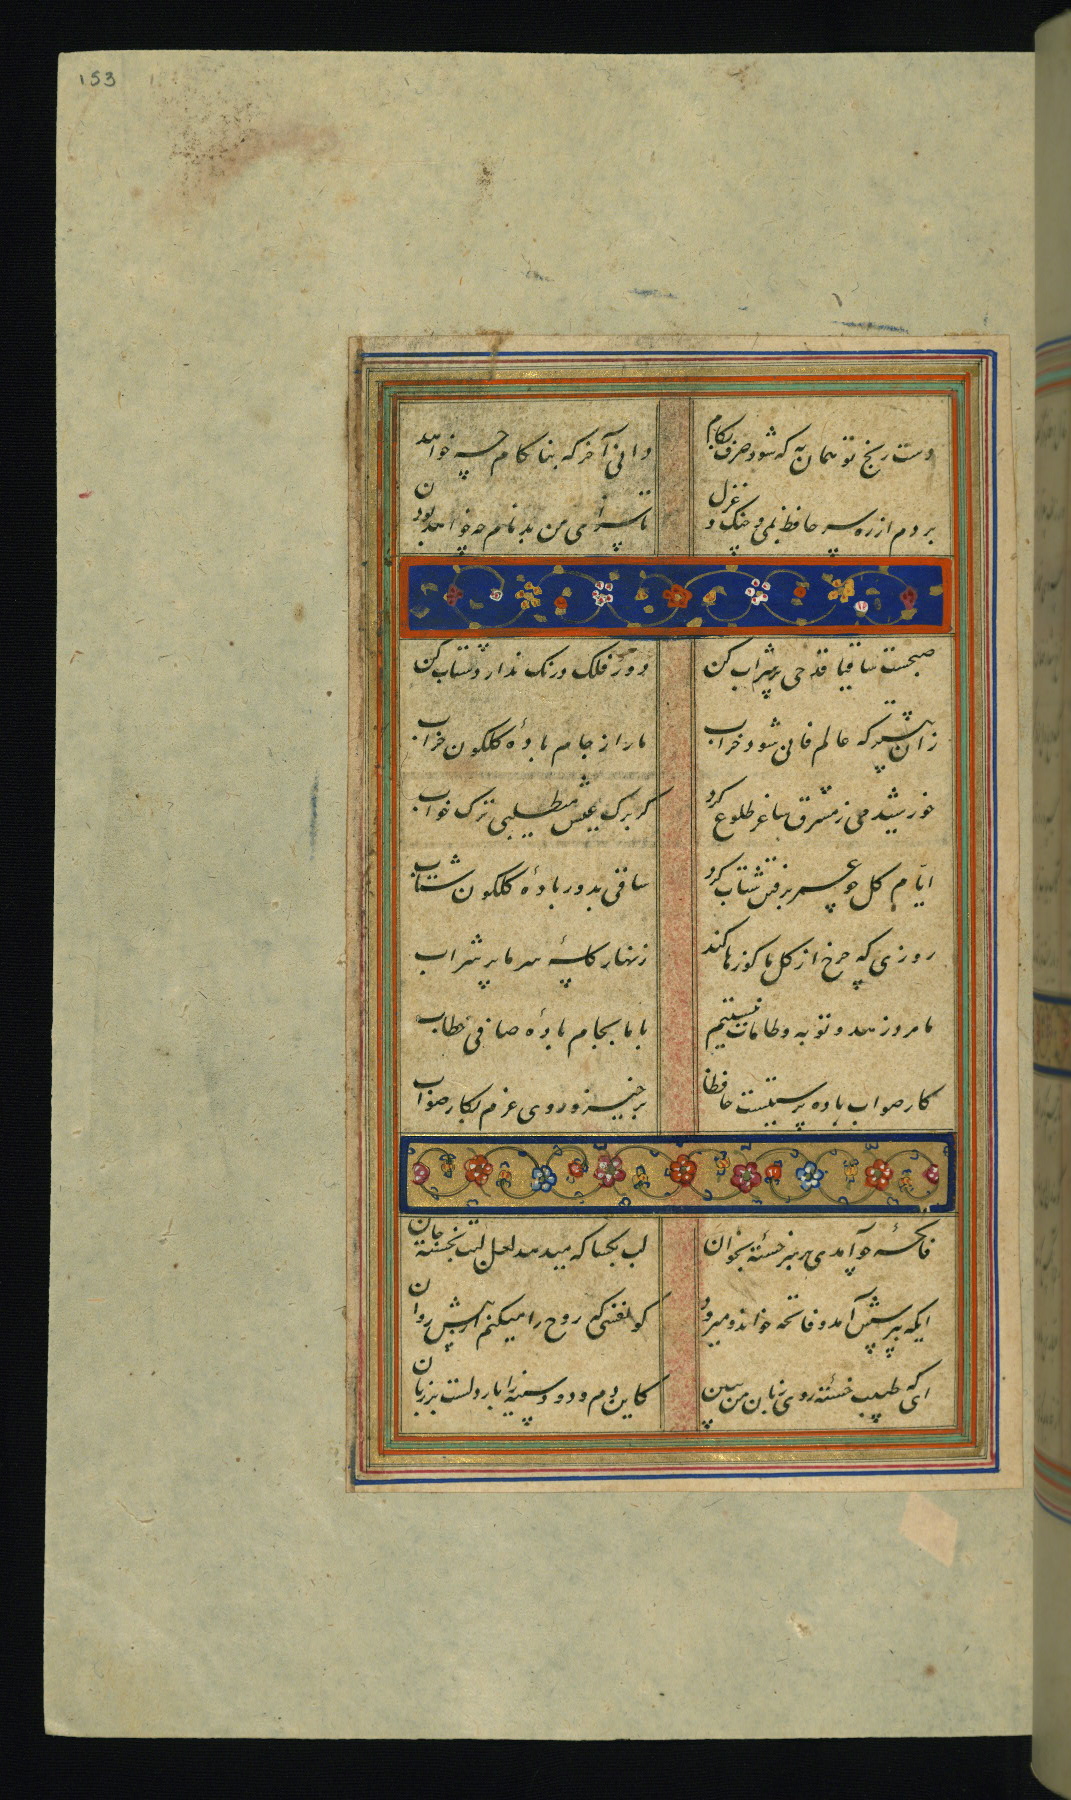 153
دست رنج تو همان به که شود صرف بکام
دانی آخر که بناکام چه خواهد
بردم از ره سر حافظ بمی و چنک و غزل
تا سزای من بدنام چه خواهد بودن
صبحست ساقیا قدحی پر شراب کن
دور فلک درنک ندارد شتاب کن
زان پیشتر که عالم فانی شود خراب
ما را ز جام باده کلکون خراب
خورشید می ز مشرق ساغر طلوع کرد
کر برک عیش میطلبی ترک خواب
ایام کل چو عمر برفتن شتاب کرد
ساقی بدور باده کلکون شتاب
روزی که چرخ از کل ما کوزها کند
زنهار کاسه سر ما پر شراب
ما مرد زهد و توبه و طامات نیستیم
با ما بجام باده صافی خطاب
کار صواب باده پرستیست حافظا
برخیز و روی عزم بکار صواب
فاتحه چو آمدی بر سر خسته بخوان
لب بکشا که میدهد لعل لبت بخسته جان
ایکه بپرسش آمد و فاتحه خواند و میرود
کو نفسی که روح را میکنم از پیش روان
ای که طبیب خسته روی زبان من ببین
کاین دم و دود سینه را بار دلست بر زبان